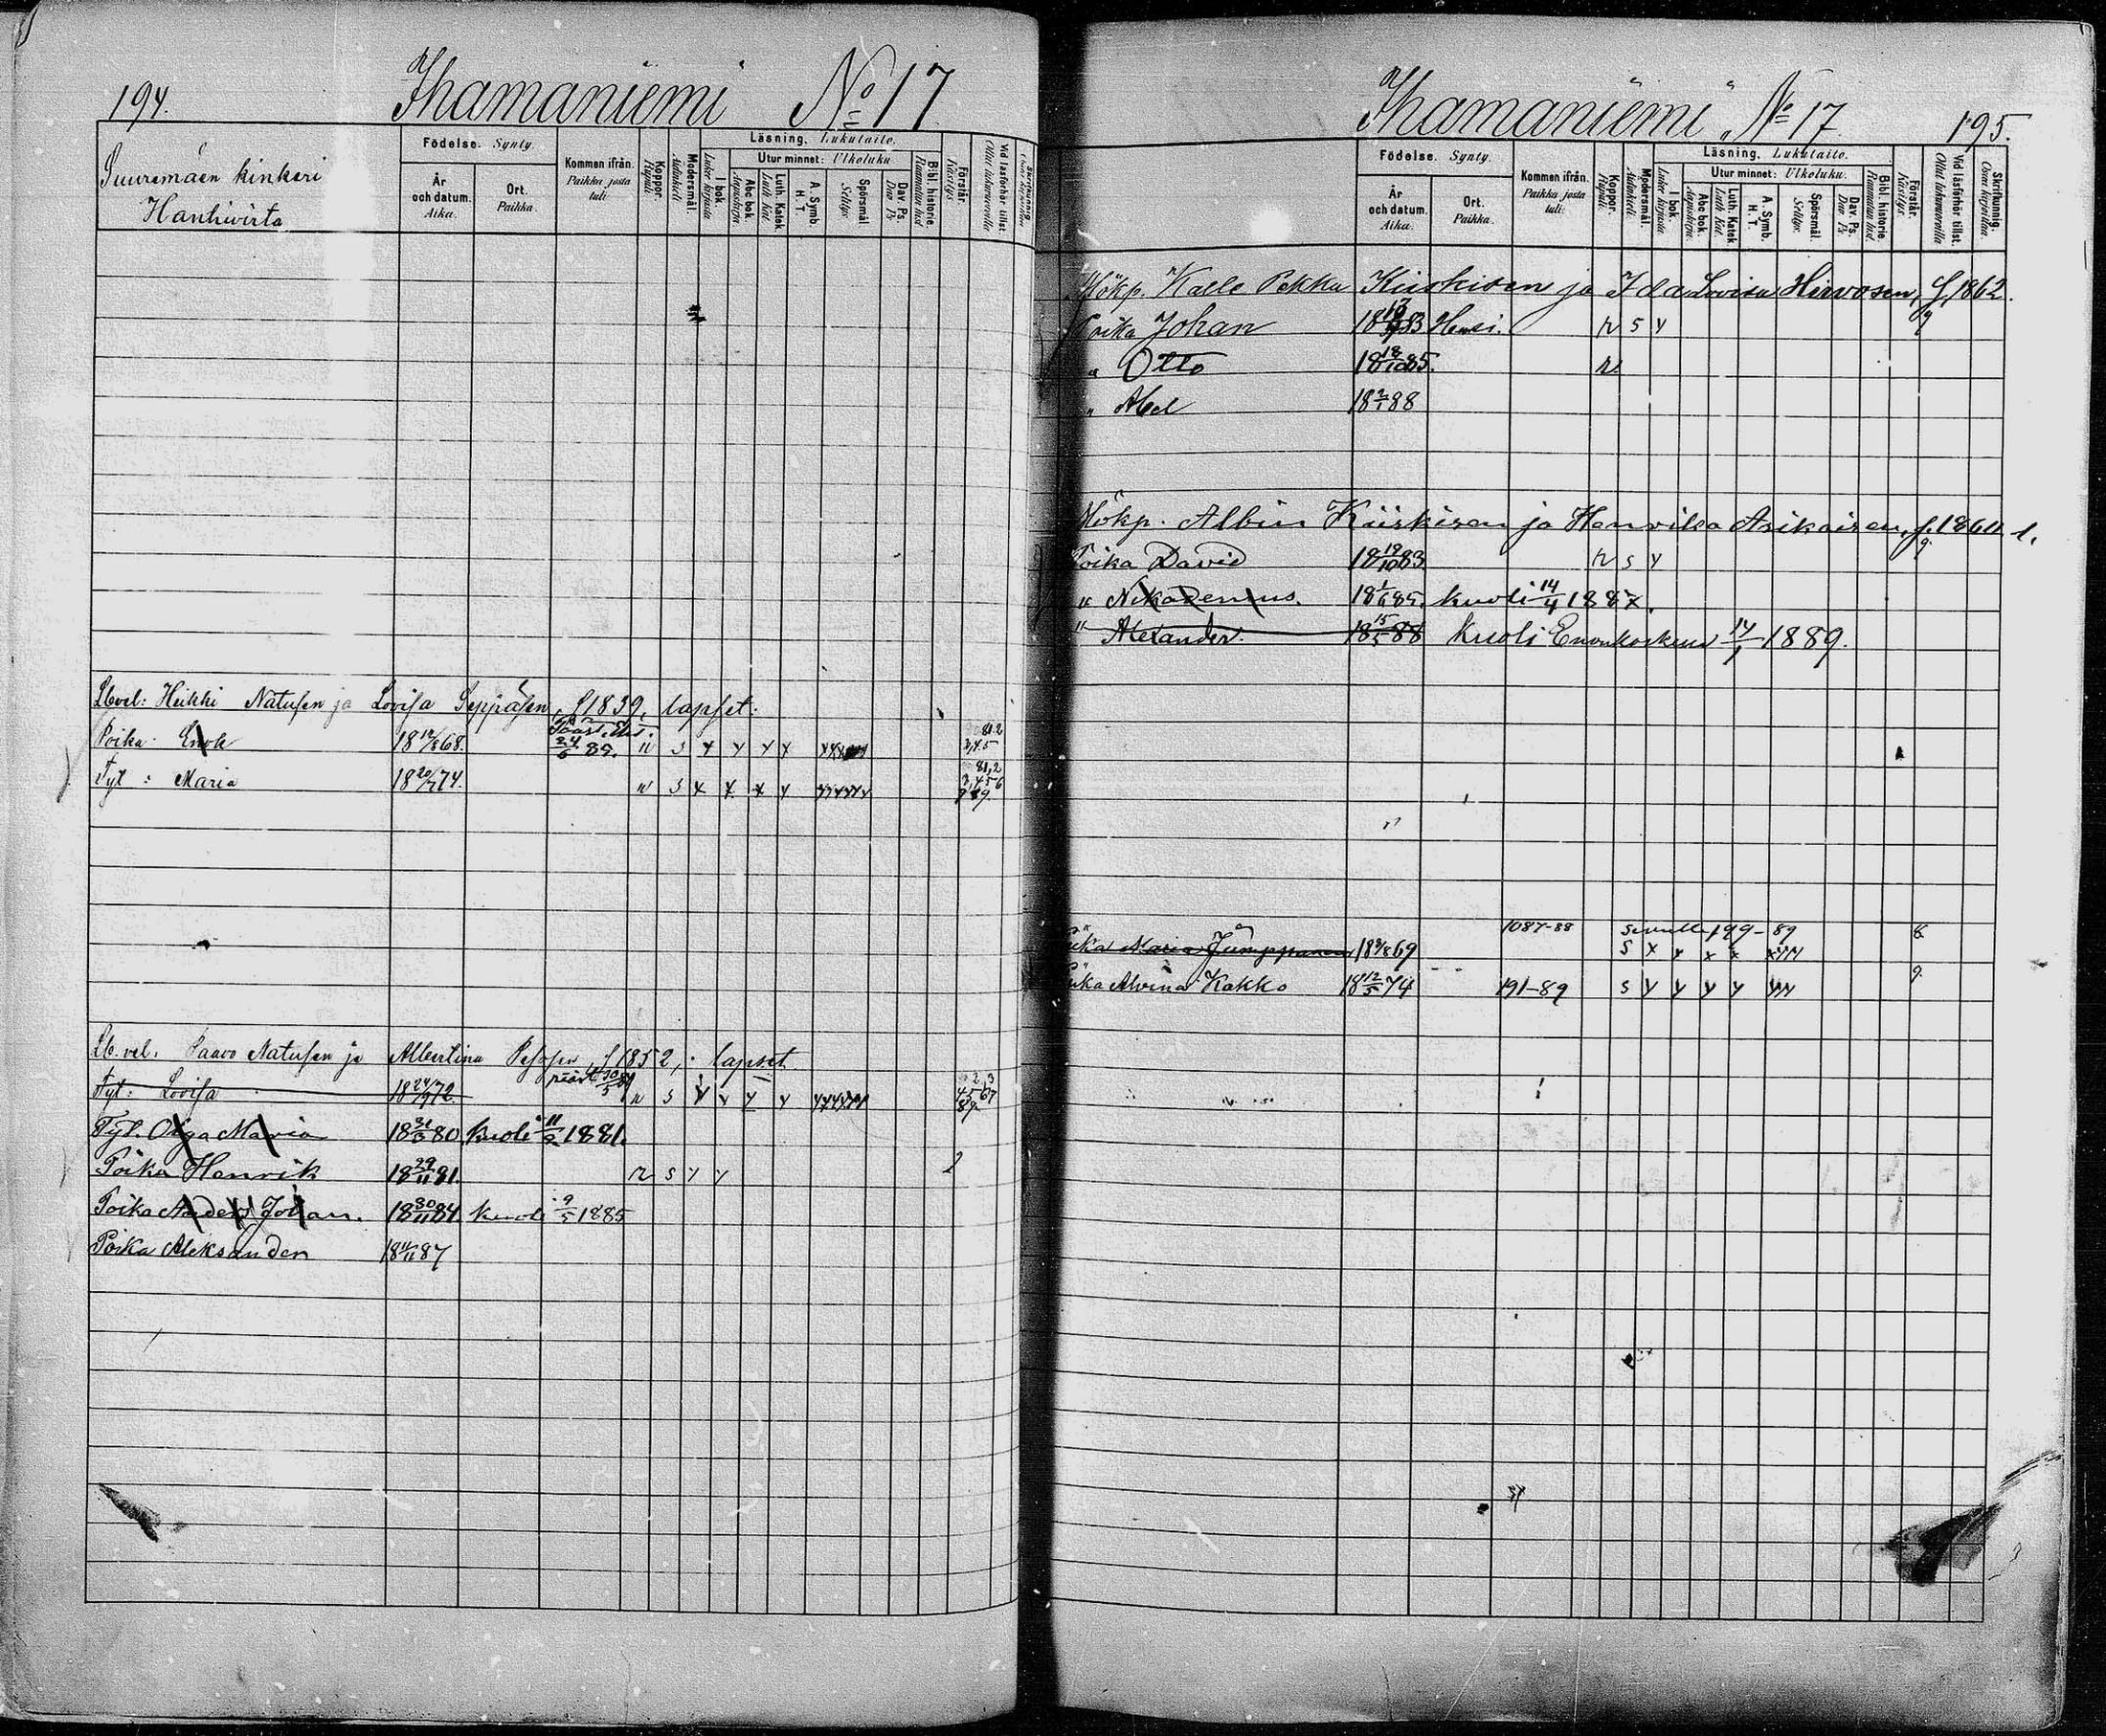 194.
Ihamaniemi No 17
Suuremäen kinkeri
Hanhivirta
Födelse. Synty.
År och datum. Aika.
Ort. Paikka.
Kommen ifrån. Paikka josta tuli.
Koppor. Rupuli
Modersmål. Äidinkieli
Läsning. Lukutaito.
I bok. Luker kirjasta
Utur minnet: Ulkoluku
Abc bok. Aapiskirja.
Luth. Katek. Luth. Kat.
A. Symb. H. T.
Spörsmål. Selitys.
Dav. Ps. Dav. Ps.
Bibl. historie. Raamatun hist.
Förstår. Käsitys.
Vid läsförhör tillst. Ollut lukuvuorolla
Lbvel: Heikki Natusen ja Lovisa Seppäsen, f 1839, lapset:
Poika Enok 18 12/8 68. 24/6 89. s y y y y
Tyt: Maria 18 20/7 74. s x x x y
Lb. vel. Paavo Natusen ja Albertina Pesosen, f 1852, lapset
Tyt: Lovisa 18 24/9 72. s y y y y
Tyt. Olga Maria 18 31/3 80 kuoli 11/2 1881.
Poika Henrik 18 29/11 81. r s y y 2
Poika Anders Johan. 18 30/11 84. kuoli 9/5 1885
Poika Aleksander 18 11/11 87
Ihamaniemi No 17
195.
Födelse. Synty.
År och datum. Aika.
Ort. Paikka.
Kommen ifrån. Paikka josta tuli:
Koppor. Rupuli
Modersmål. Äidinkieli
Läsning. Lukutaito.
I bok. Luker kirjasta
Utur minnet: Ulkoluku.
Abc bok. Aapiskirja.
Luth. Katek. Luth. Kat.
A. Symb. H. T.
Spörsmål. Selitys.
Dav. Ps. Dav. Ps.
Bibl. historie Raamatun hist.
Förstår. Käsitys.
Vid läsförhör tillst. Ollut lukuvuorolla
Skrifkunnig. Osaa kirjoittaa.
Mökp. Kalle Pekka Kiiskisen ja Ida Lovisa Hirvosen, f. 1862.
Poika Johan 83 r s y 9
" Otto 18 18/10 85. r
" Abel 18 2/1 88
Mökp. Albin Kiiskisen ja Henrika Asikaisen, f. 1860 l.
Poika David 18 19/10 83 r s y 9
" Nikodemus. 18 1/6 85. kuoli 14/4 1887.
" Alexander. 18 15/5 88 kuoli Enonkoskella 14/1 1889.
Piika Maria Jumppanen 18 9/8 69 1087-88 s x y x x 8
Piika Alvina Kakko 18 12/5 74 191-89 s y y y y 9